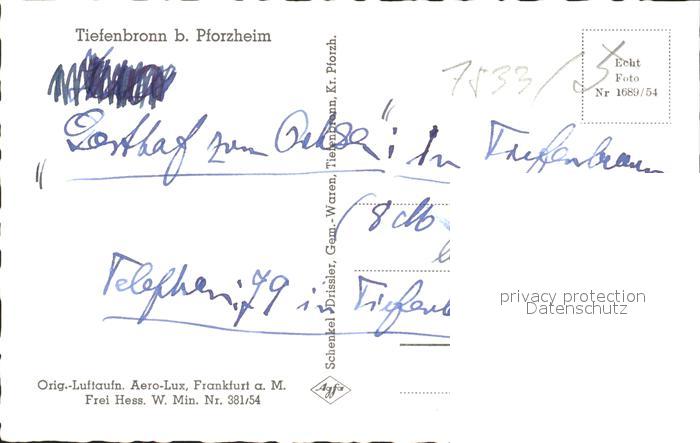 Tiefenbronn b. Pforzheim
7533/5
Echt
Foto
Nr 1689/54
„Gasthof zum Ochsen“ in Tiefenbronn
(8 
Telephon: 79 in Tiefenb
privacy protection
Datenschutz
Schenkel Drissler, Gem.-Waren, Tiefenbronn, Kr. Pforzh.
Orig.-Luftaufn. Aero-Lux, Frankfurt a. M.
Frei Hess. W. Min. Nr. 381/54
Agfa